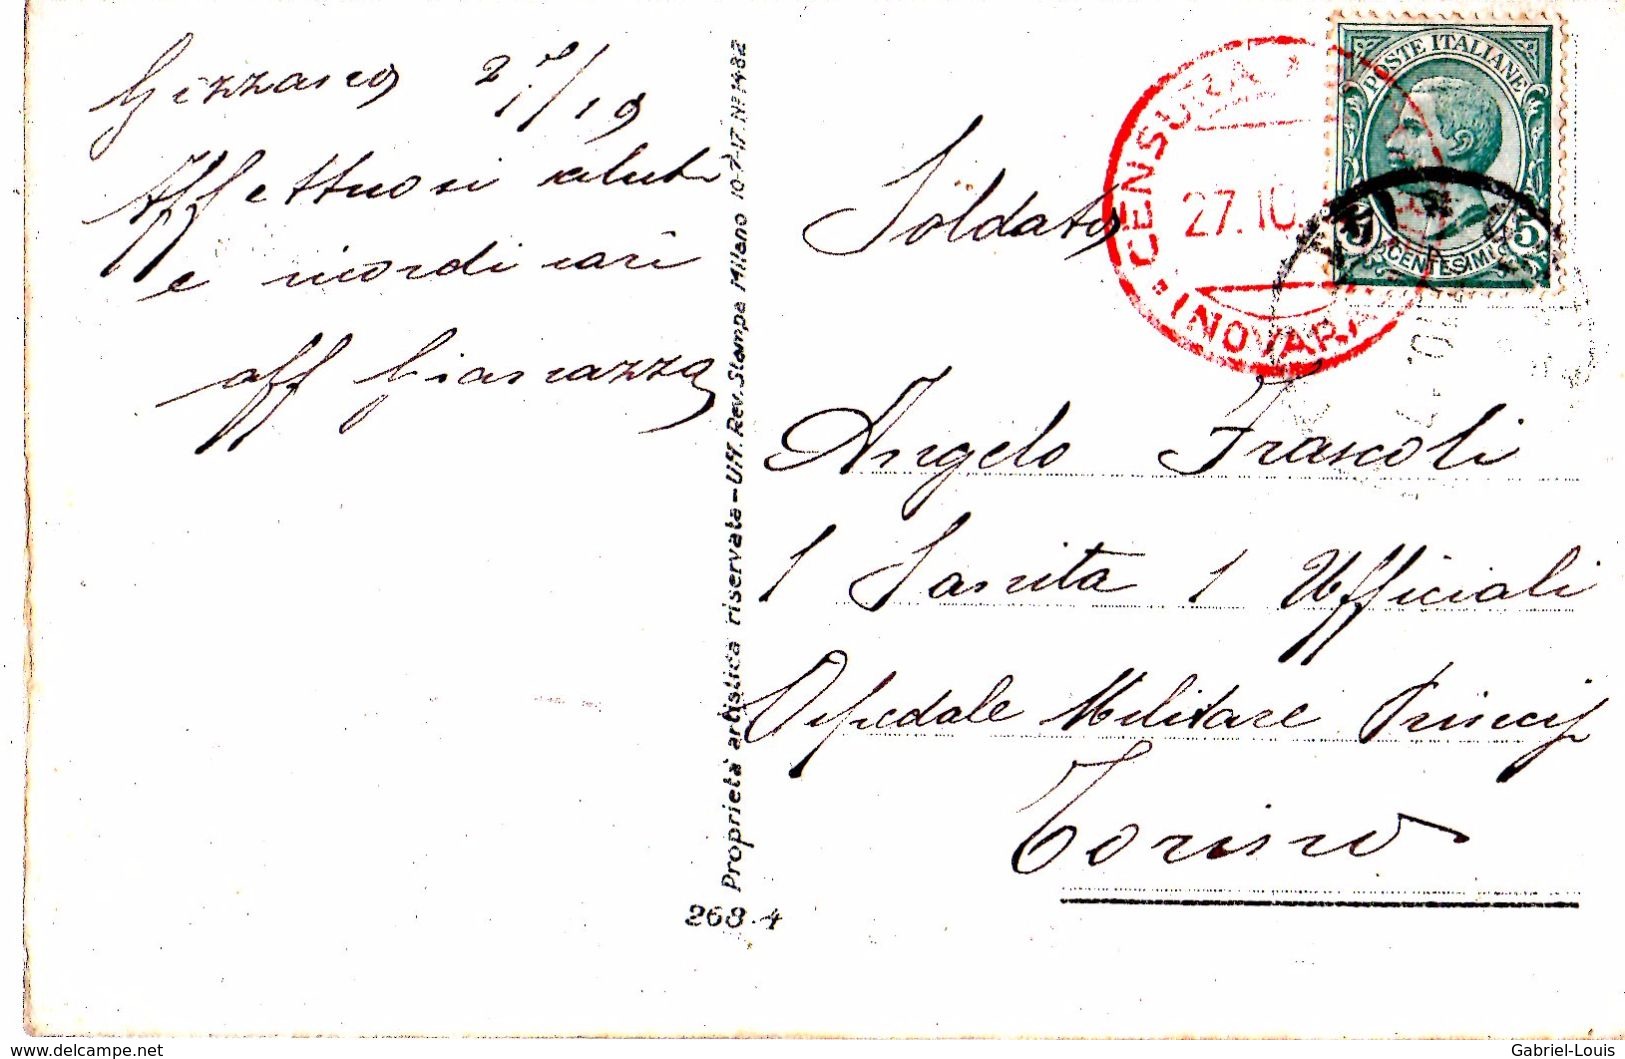 Gizzano 27/19
Affettuosi saluti
e ricordi cari
aff Gianazza
Proprietà artistica riservata - Uff. Rev. Stampa Milano 10-7-17. N. 1482
268-4
POSTE ITALIANE
5 CENTESIMI 5
CENSURA
27.10.
NOVARA
Soldato
Angelo Frascoli
1 Sanita 1 Ufficiali
Ospedale Militare Princip
Torino
www.delcampe.net
Gabriel-Louis